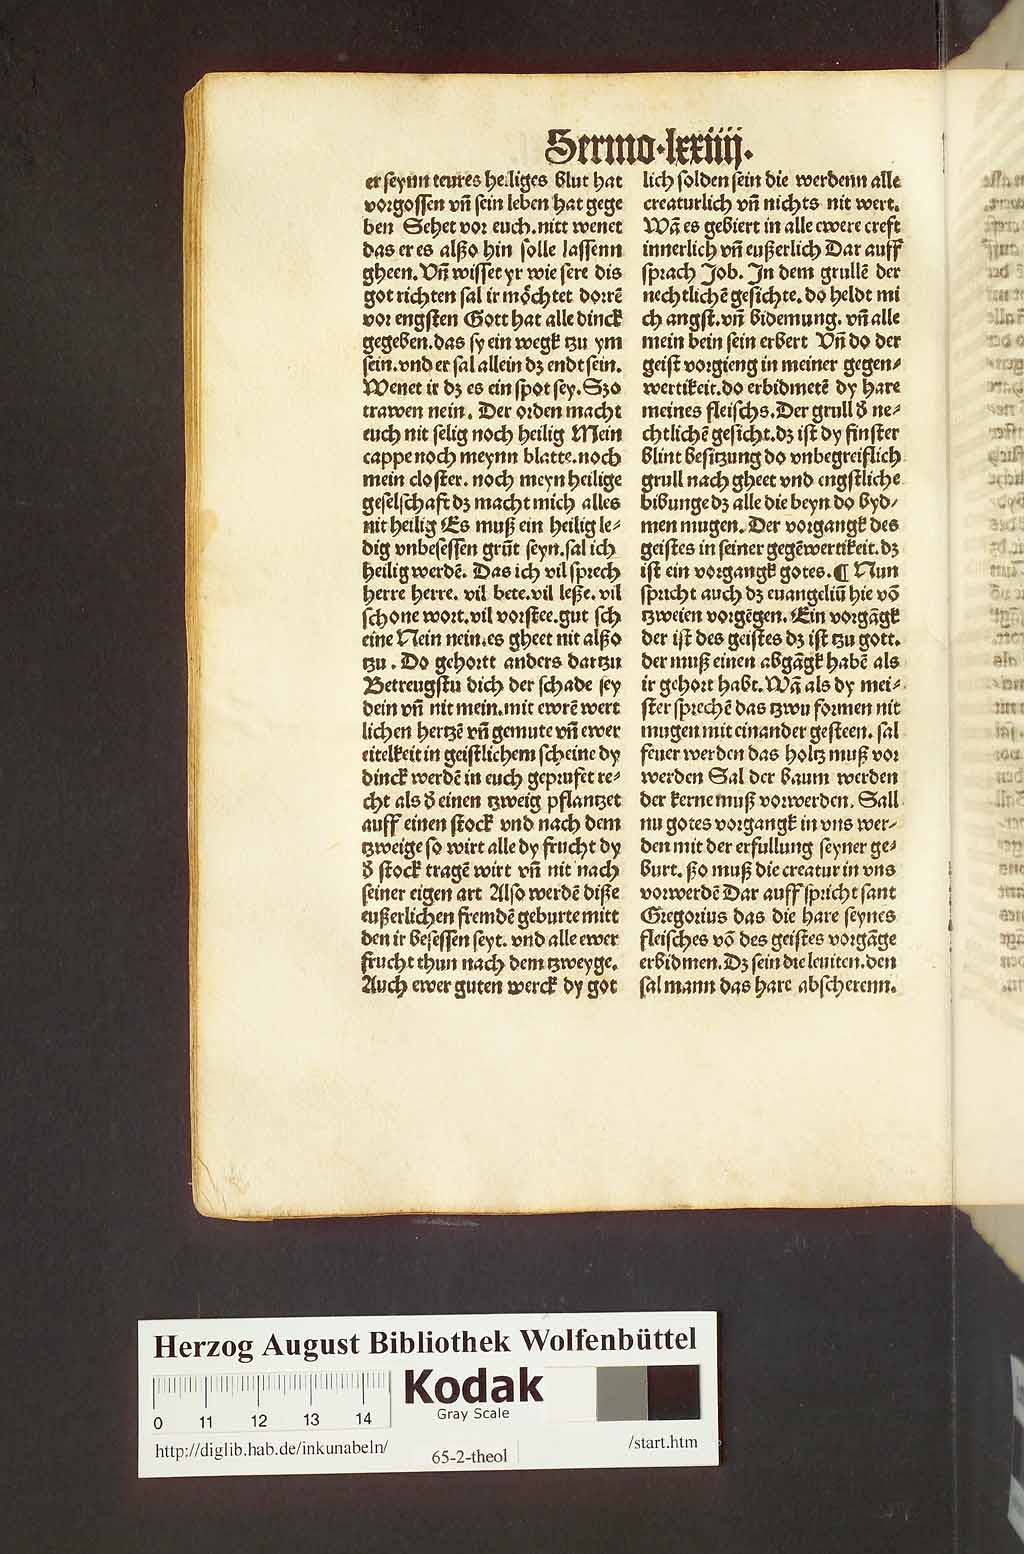 Sermo·lxxiiij.
er seynn teures heiliges blut hat
vorgossen vñ sein leben hat gege
ben Sehet vor euch. nitt wenet
das er es alßo hin solle lassenn
gheen. Vñ wisset yr wie sere dis
got richten sal ir möchtet dorrē
vor engsten Gott hat alle dinck
gegeben. das sy ein wegk tzu ym
sein. vnd er sal allein dz endt sein.
Wenet ir dz es ein spot sey. Szo
trawen nein. Der orden macht
euch nit selig noch heilig Mein
cappe noch meynn blatte. noch
mein closter. noch meyn heilige
geselschaft dz macht mich alles
nit heilig Es muß ein heilig le⸗
dig vnbesessen grūt seyn. sal ich
heilig werdē. Das ich vil sprech
herre herre. vil bete. vil leße. vil
schone wort. vil vorstee. gut sch
eine Nein nein. es gheet nit alßo
tzu. Do gehortt anders dartzu
Betreugstu dich der schade sey
dein vñ nit mein. mit ewrē wert
lichen hertzē vñ gemute vñ ewer
eitelkeit in geistlichem scheine dy
dinck werdē in euch geprufet re⸗
cht als d̕ einen tzweig pflantzet
auff einen stock vnd nach dem
tzweige so wirt alle dy frucht dy
d̕ stock tragē wirt vñ nit nach
seiner eigen art Also werdē diße
eußerlichen fremdē geburte mitt
den ir besessen seyt. vnd alle ewer
frucht thun nach dem tzweyge.
Auch ewer guten werck dy got
lich solden sein die werdenn alle
creaturlich vñ nichts nit wert.
Wā es gebiert in alle ewere creft
innerlich vñ eußerlich Dar auff
sprach Job. In dem grullē der
nechtlichē gesichte. do heldt mi
ch angst. vñ bidemung. vñ alle
mein bein sein erbert Vñ do der
geist vorgieng in meiner gegen⸗
wertikeit. do erbidmetē dy hare
meines fleischs. Der grull d̕ ne⸗
chtlichē gesicht. dz ist dy finster
blint besitzung do vnbegreiflich
grull nach gheet vnd engstliche
bibunge dz alle die beyn do byd⸗
men mugen. Der vorgangk des
geistes in seiner gegēwertikeit. dz
ist ein vorgangk gotes. ¶ Nun
spricht auch dz euangeliū hie vō
tzweien vorgēgen. Ein vorgāgk
der ist des geistes dz ist tzu gott.
der muß einen abgāgk habē als
ir gehort habt. Wā als dy mei⸗
ster sprechē das tzwu formen nit
mugen mit einander gesteen. sal
feuer werden das holtz muß vor
werden Sal der baum werden
der kerne muß vorwerden. Sall
nu gotes vorgangk in vns wer⸗
den mit der erfullung seyner ge⸗
burt. ßo muß die creatur in vns
vorwerdē Dar auff spricht sant
Gregorius das die hare seynes
fleisches vō des geistes vorgāge
erbidmen. Dz sein die leuiten. den
sal mann das hare abscherenn.
Herzog August Bibliothek Wolfenbüttel
Kodak
Gray Scale
0 11 12 13 14
http://diglib.hab.de/inkunabeln/
65-2-theol
/start.htm